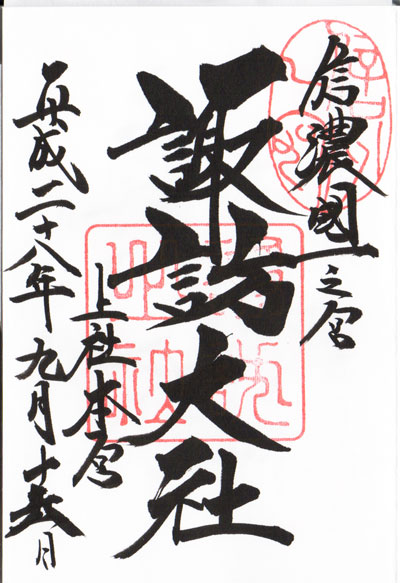 信濃國一之宮
諏訪大社
上社本宮
平成二十八年九月十六日